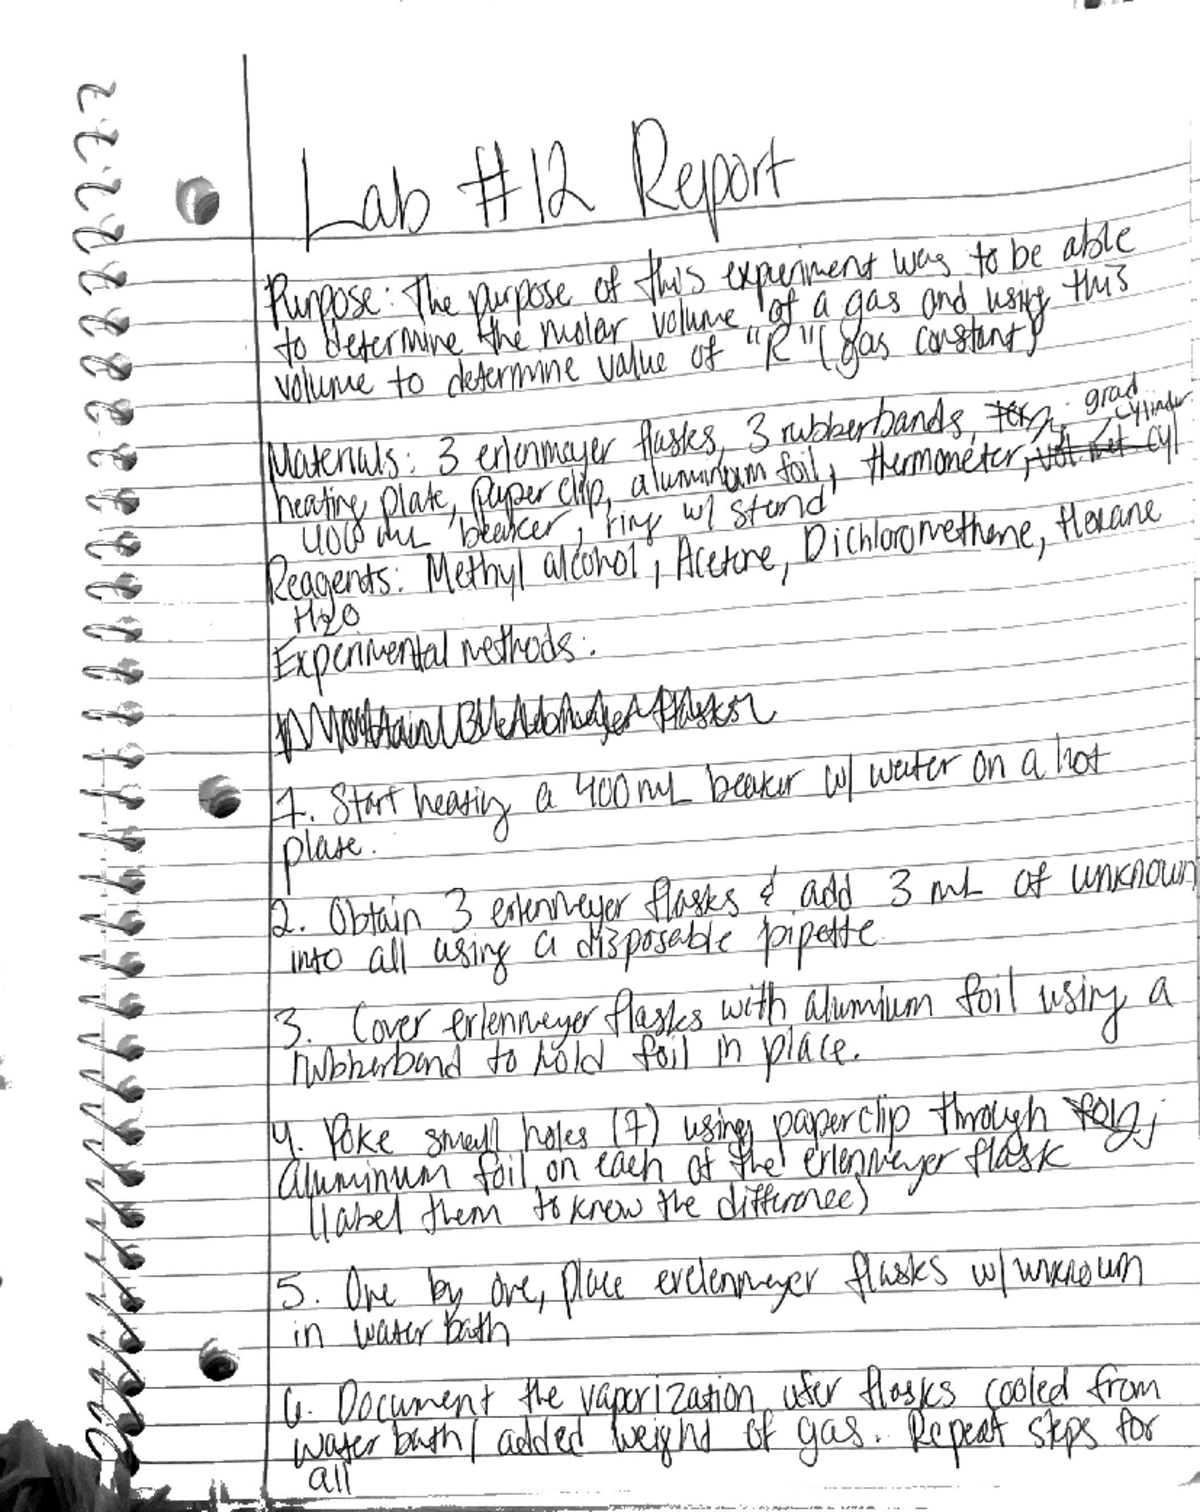 Lab #12 Report
Purpose: The purpose of this experiment was to be able
to determine the molar volume of a gas and using this
volume to determine value of "R" (gas constant)
grad
cylinder
Materials: 3 erlenmeyer flasks, 3 rubberbands,
heating plate, paper clip, aluminum foil, thermometer,
400 mL beaker, ring w/ stand
Reagents: Methyl alcohol, Acetone, Dichloromethane, Hexane
H2O
Experimental methods:
1. Start heating a 400 mL beaker w/ water on a hot
plate.
2. Obtain 3 erlenmeyer flasks & add 3 mL of unknown
into all using a disposable pipette
3. Cover erlenmeyer flasks with alumium foil using a
rubberband to hold foil in place.
4. Poke small holes (7) using paperclip through
aluminum foil on each of the erlenmeyer flask
(label them to know the difference)
5. One by one, place erelenmeyer flasks w/ unknown
in water bath
6. Document the vaporization after flasks cooled from
water bath/ added weight of gas. Repeat steps for
all